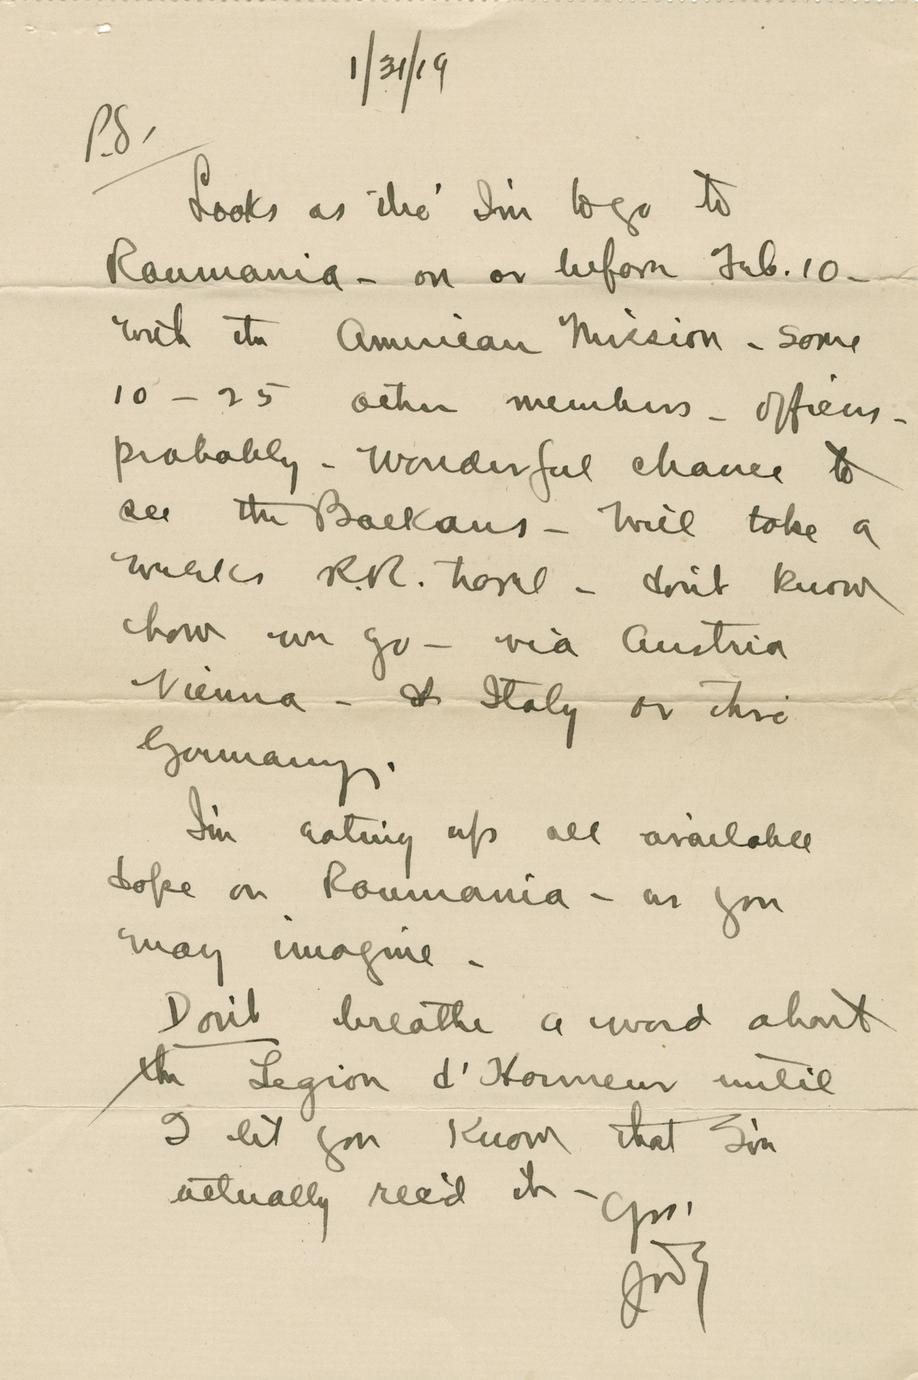 1/31/19
P.S.
Looks as tho' I'm to go to
Roumania - on or before Feb. 10 -
with the American Mission - some
10 - 25 other members - officers -
probably - Wonderful chance to
see the Balkans - Will take a
weeks R.R. travel - don't know
how we go - via Austria
Vienna - & Italy or thro
Germany.
I'm eating up all available
dope on Roumania - as you
may imagine -
Don't breathe a word about
the Legion d'Honneur until
I let you know that I'm
actually rec'd it -